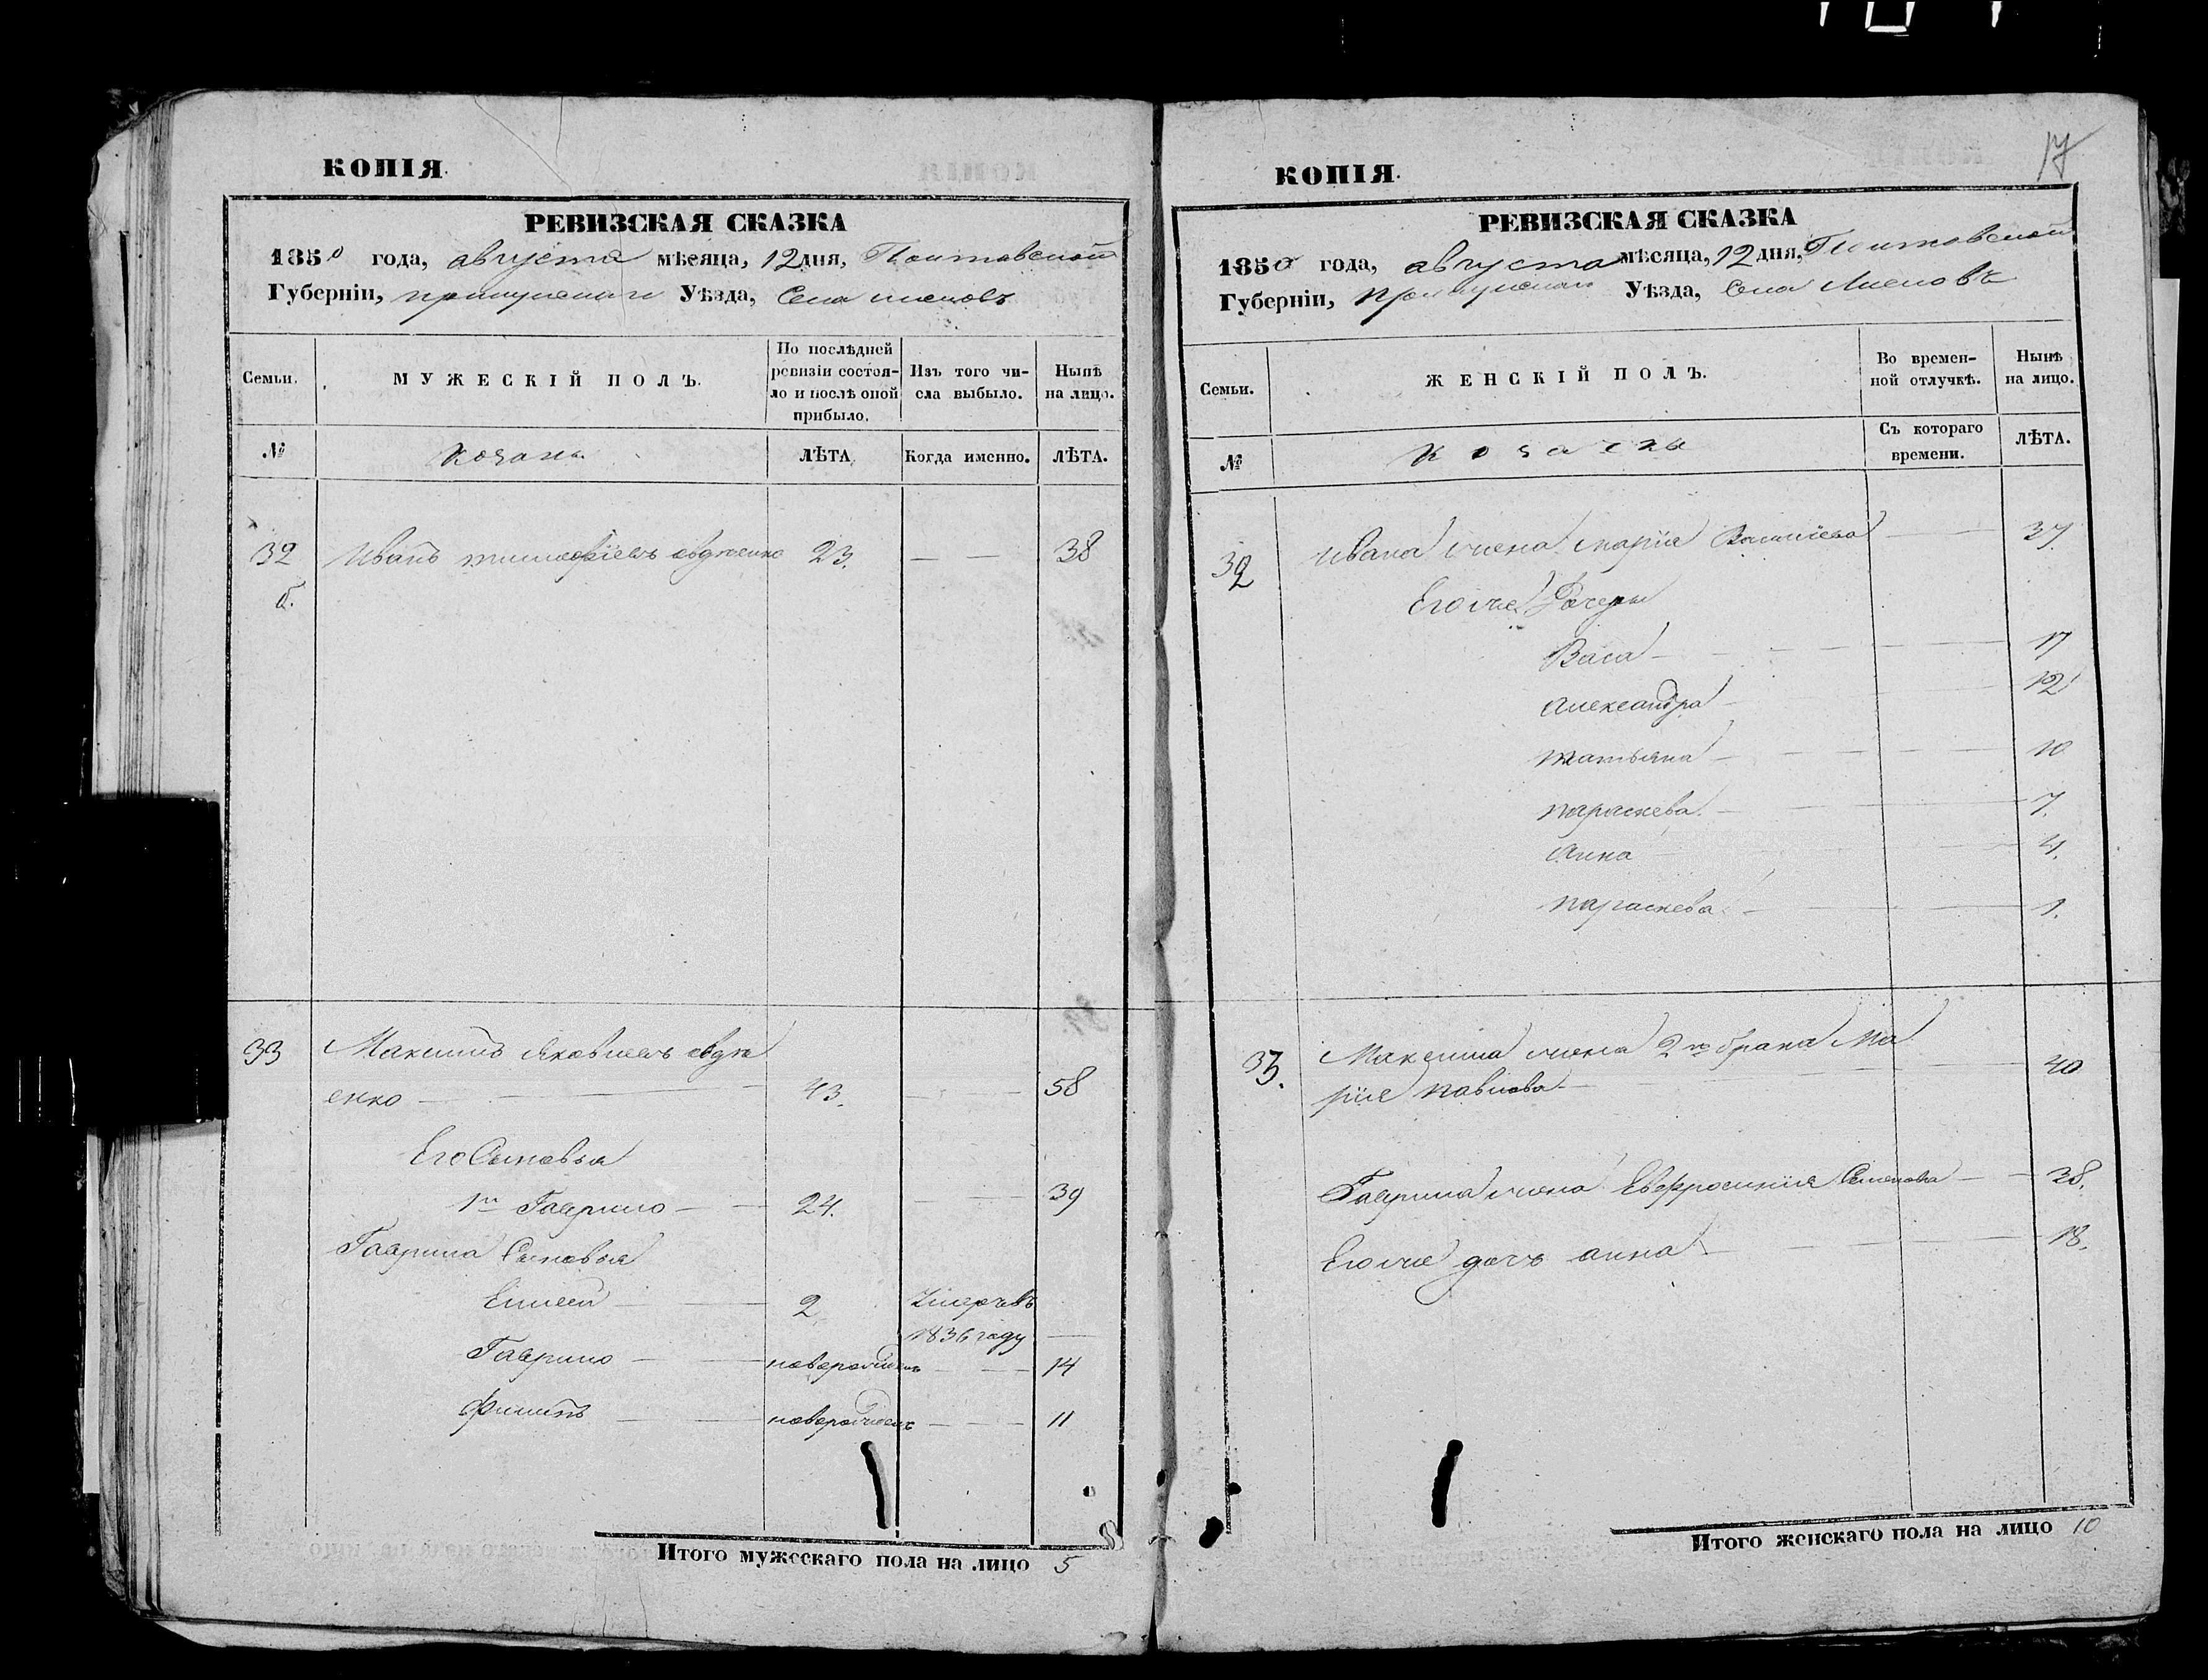 17
КОПІЯ.
РЕВИЗСКАЯ СКАЗКА
1850 года, августа мѣсяца, 12 дня, Полтавской
Губерніи, прилуцкаго Уѣзда, Села
Семьи.
МУЖЕСКІЙ ПОЛЪ.
По послѣдней ревизіи состоя-
ло и послѣ оной прибыло.
Изъ того чи-
сла выбыло.
Нынѣ на лицо.
№
козаки
ЛѢТА.
Когда именно.
ЛѢТА.
32 Иванъ тимофіевъ авдѣенко 23. — — 38
б.
33 Максимъ Яковлевъ авдѣ
енко — 43. — — 58
Его Сыновья
1й Гаврило — 24. — — 39
Гаврила Сыновья
Елисей — 2 Умеръ въ
1836 году —
Гаврило — новорожденъ — — 14
Филипъ — новорожденъ — — 11
Итого мужескаго пола на лицо 5
КОПІЯ.
РЕВИЗСКАЯ СКАЗКА
1850 года, августа мѣсяца, 12 дня, Полтавской
Губерніи, Прилуцкаго Уѣзда, Села
Семьи.
ЖЕНСКІЙ ПОЛЪ.
Во времен-
ной отлучкѣ.
Нынѣ
на лицо.
№
козачки
Съ котораго
времени.
ЛѢТА.
32 Ивана жена марія Васильева — 37.
Его же Дочери
Васа — 17
Александра — 12
татьяна — 10
параскева — 7.
Анна — 4.
параскева — 1.
33. Максима жена 2го брака Ма
рія павлова — 40
Гаврила жена Евфросинія Семенова — 38.
Его же дочь анна — 18.
Итого женскаго пола на лицо 10